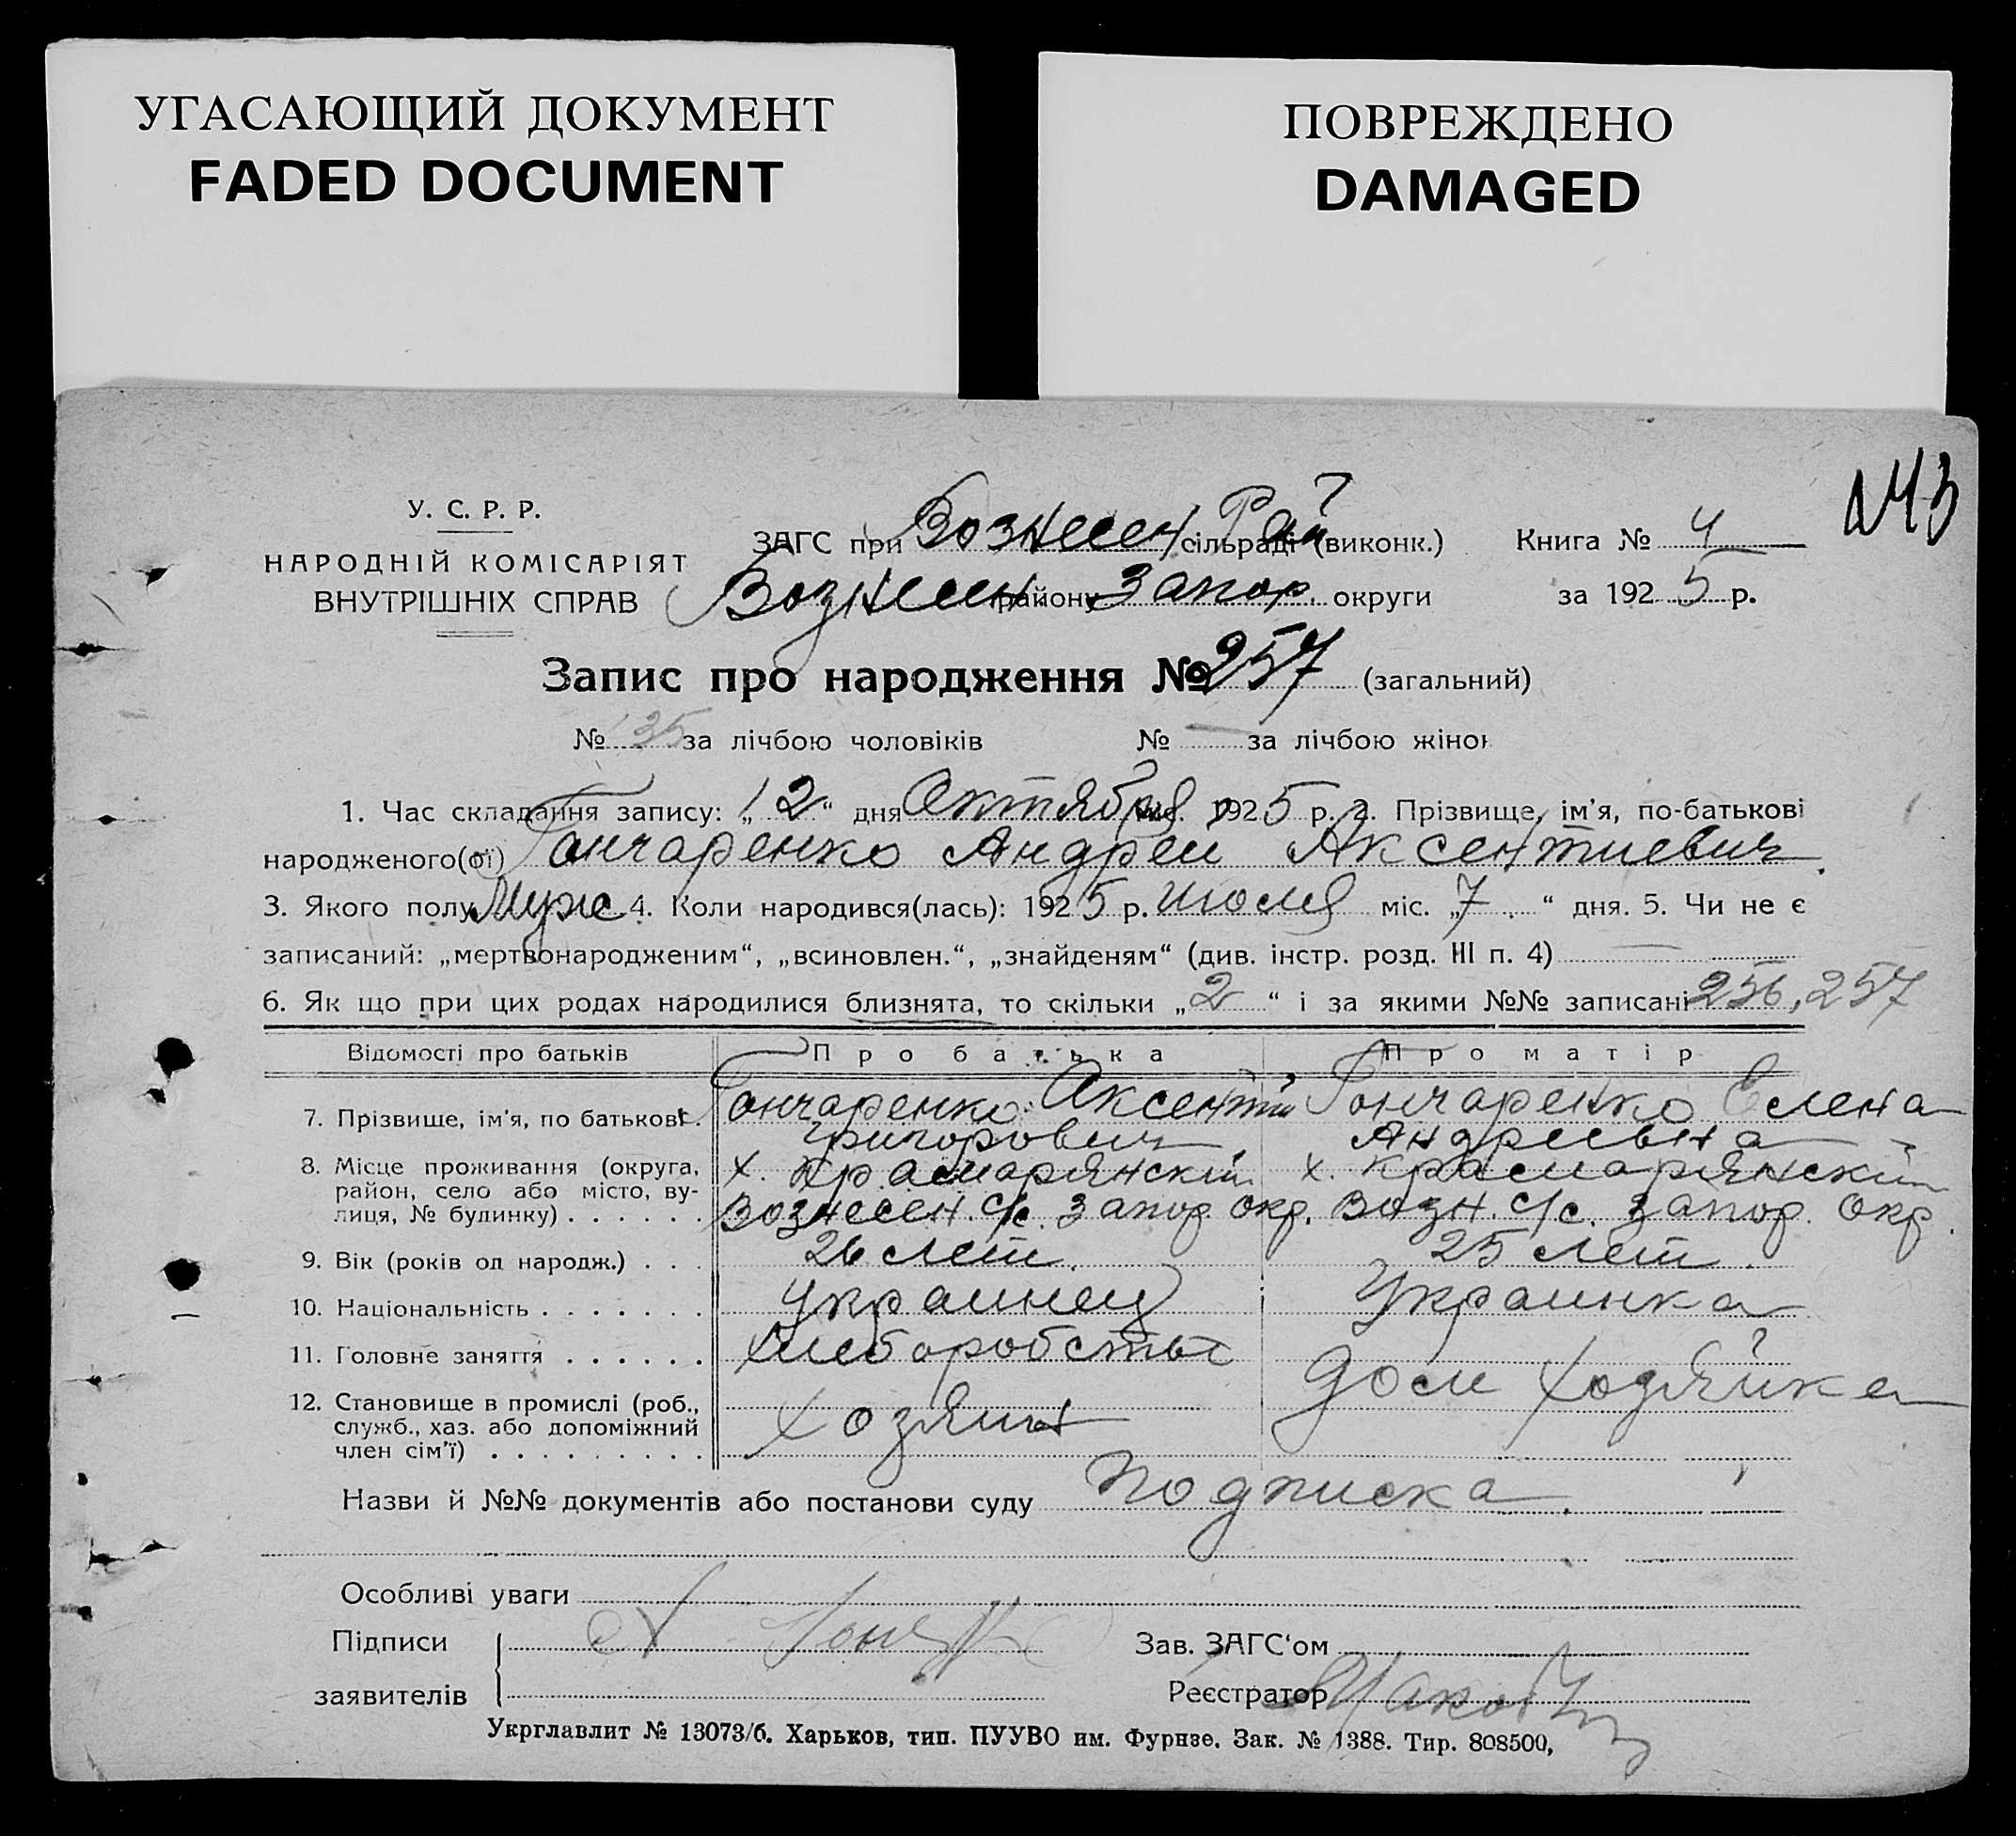 УГАСАЮЩИЙ ДОКУМЕНТ
FADED DOCUMENT
ПОВРЕЖДЕНО
DAMAGED
У. С. Р. Р.
НАРОДНІЙ КОМІСАРІЯТ
ВНУТРІШНІХ СПРАВ
ЗАГС при Вознесен сільраді Рай (виконк.)
Вознесен району Запор. округи
Книга № 4
за 1925 р.
Запис про народження № 257 (загальний)
№ 135 за лічбою чоловіків № — за лічбою жінок
1. Час складання запису: „12“ дня Октября міс. 1925 р. 2. Прізвище, ім'я, по-батькові
народженого(ої) Гончаренко Андрей Аксентиевич
3. Якого полу Муж 4. Коли народився(лась): 1925 р. июля міс. „7“ дня. 5. Чи не є
записаний: „мертвонародженим“, „всиновлен.“, „знайденям“ (див. інстр. розд. III п. 4)
6. Як що при цих родах народилися близнята, то скільки „2“ і за якими №№ записані 256, 257
Відомості про батьків Про батька Про матір
7. Прізвище, ім'я, по батькові. Гончаренко Аксентий Гончаренко Елена
Григорович Андреевна
8. Місце проживання (округа, х. Красмарянский х. Красмарянский
район, село або місто, ву-
лиця, № будинку) . . . . . . Вознесен. с/с. Запор. Окр. Возн. с/с. Запор. Окр.
9. Вік (років од народж.) . . . 26 лет. 25 лет.
10. Національність . . . . . . . Украинец Украинка
11. Головне заняття . . . . . . Хлеборобство
дом Хозяйка
12. Становище в промислі (роб.,
служб., хаз. або допоміжний Хозяин
член сім'ї) . . . . . . . . .
Назви й №№ документів або постанови суду Подписка.
Особливі уваги
Підписи
заявителів
Зав. ЗАГС'ом
Реєстратор
Укрглавлит № 13073/б. Харьков, тип. ПУУВО им. Фурнзе. Зак. № 1388. Тир. 808500,